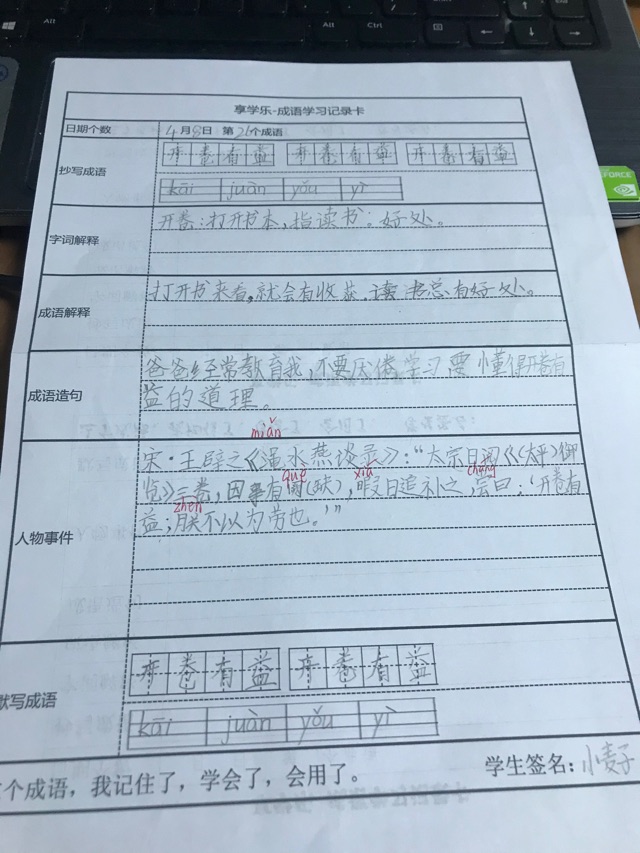 享学乐-成语学习记录卡
日期个数 4月5日 第26个成语
抄写成语 开卷有益 开卷有益 开卷有益
kāi juàn yǒu yì
字词解释 开卷:打开书本,指读书。好处。
成语解释 打开书来看,就会有收益,读书总有好处。
成语造句 爸爸经常教育我,不要厌倦学习要懂得开卷有
益的道理。
miǎn
宋·王辟之《渑水燕谈录》:“太宗日阅《(太平)御
quē xiá cháng
览》三卷,因事有阙(缺),暇日追补之,尝曰:‘开卷有
zhèn
人物事件 益,朕不以为劳也。’”
默写成语 开卷有益 开卷有益
kāi juàn yǒu yì
个成语,我记住了,学会了,会用了。 学生签名:小麦子
Alt
Alt
Ctrl